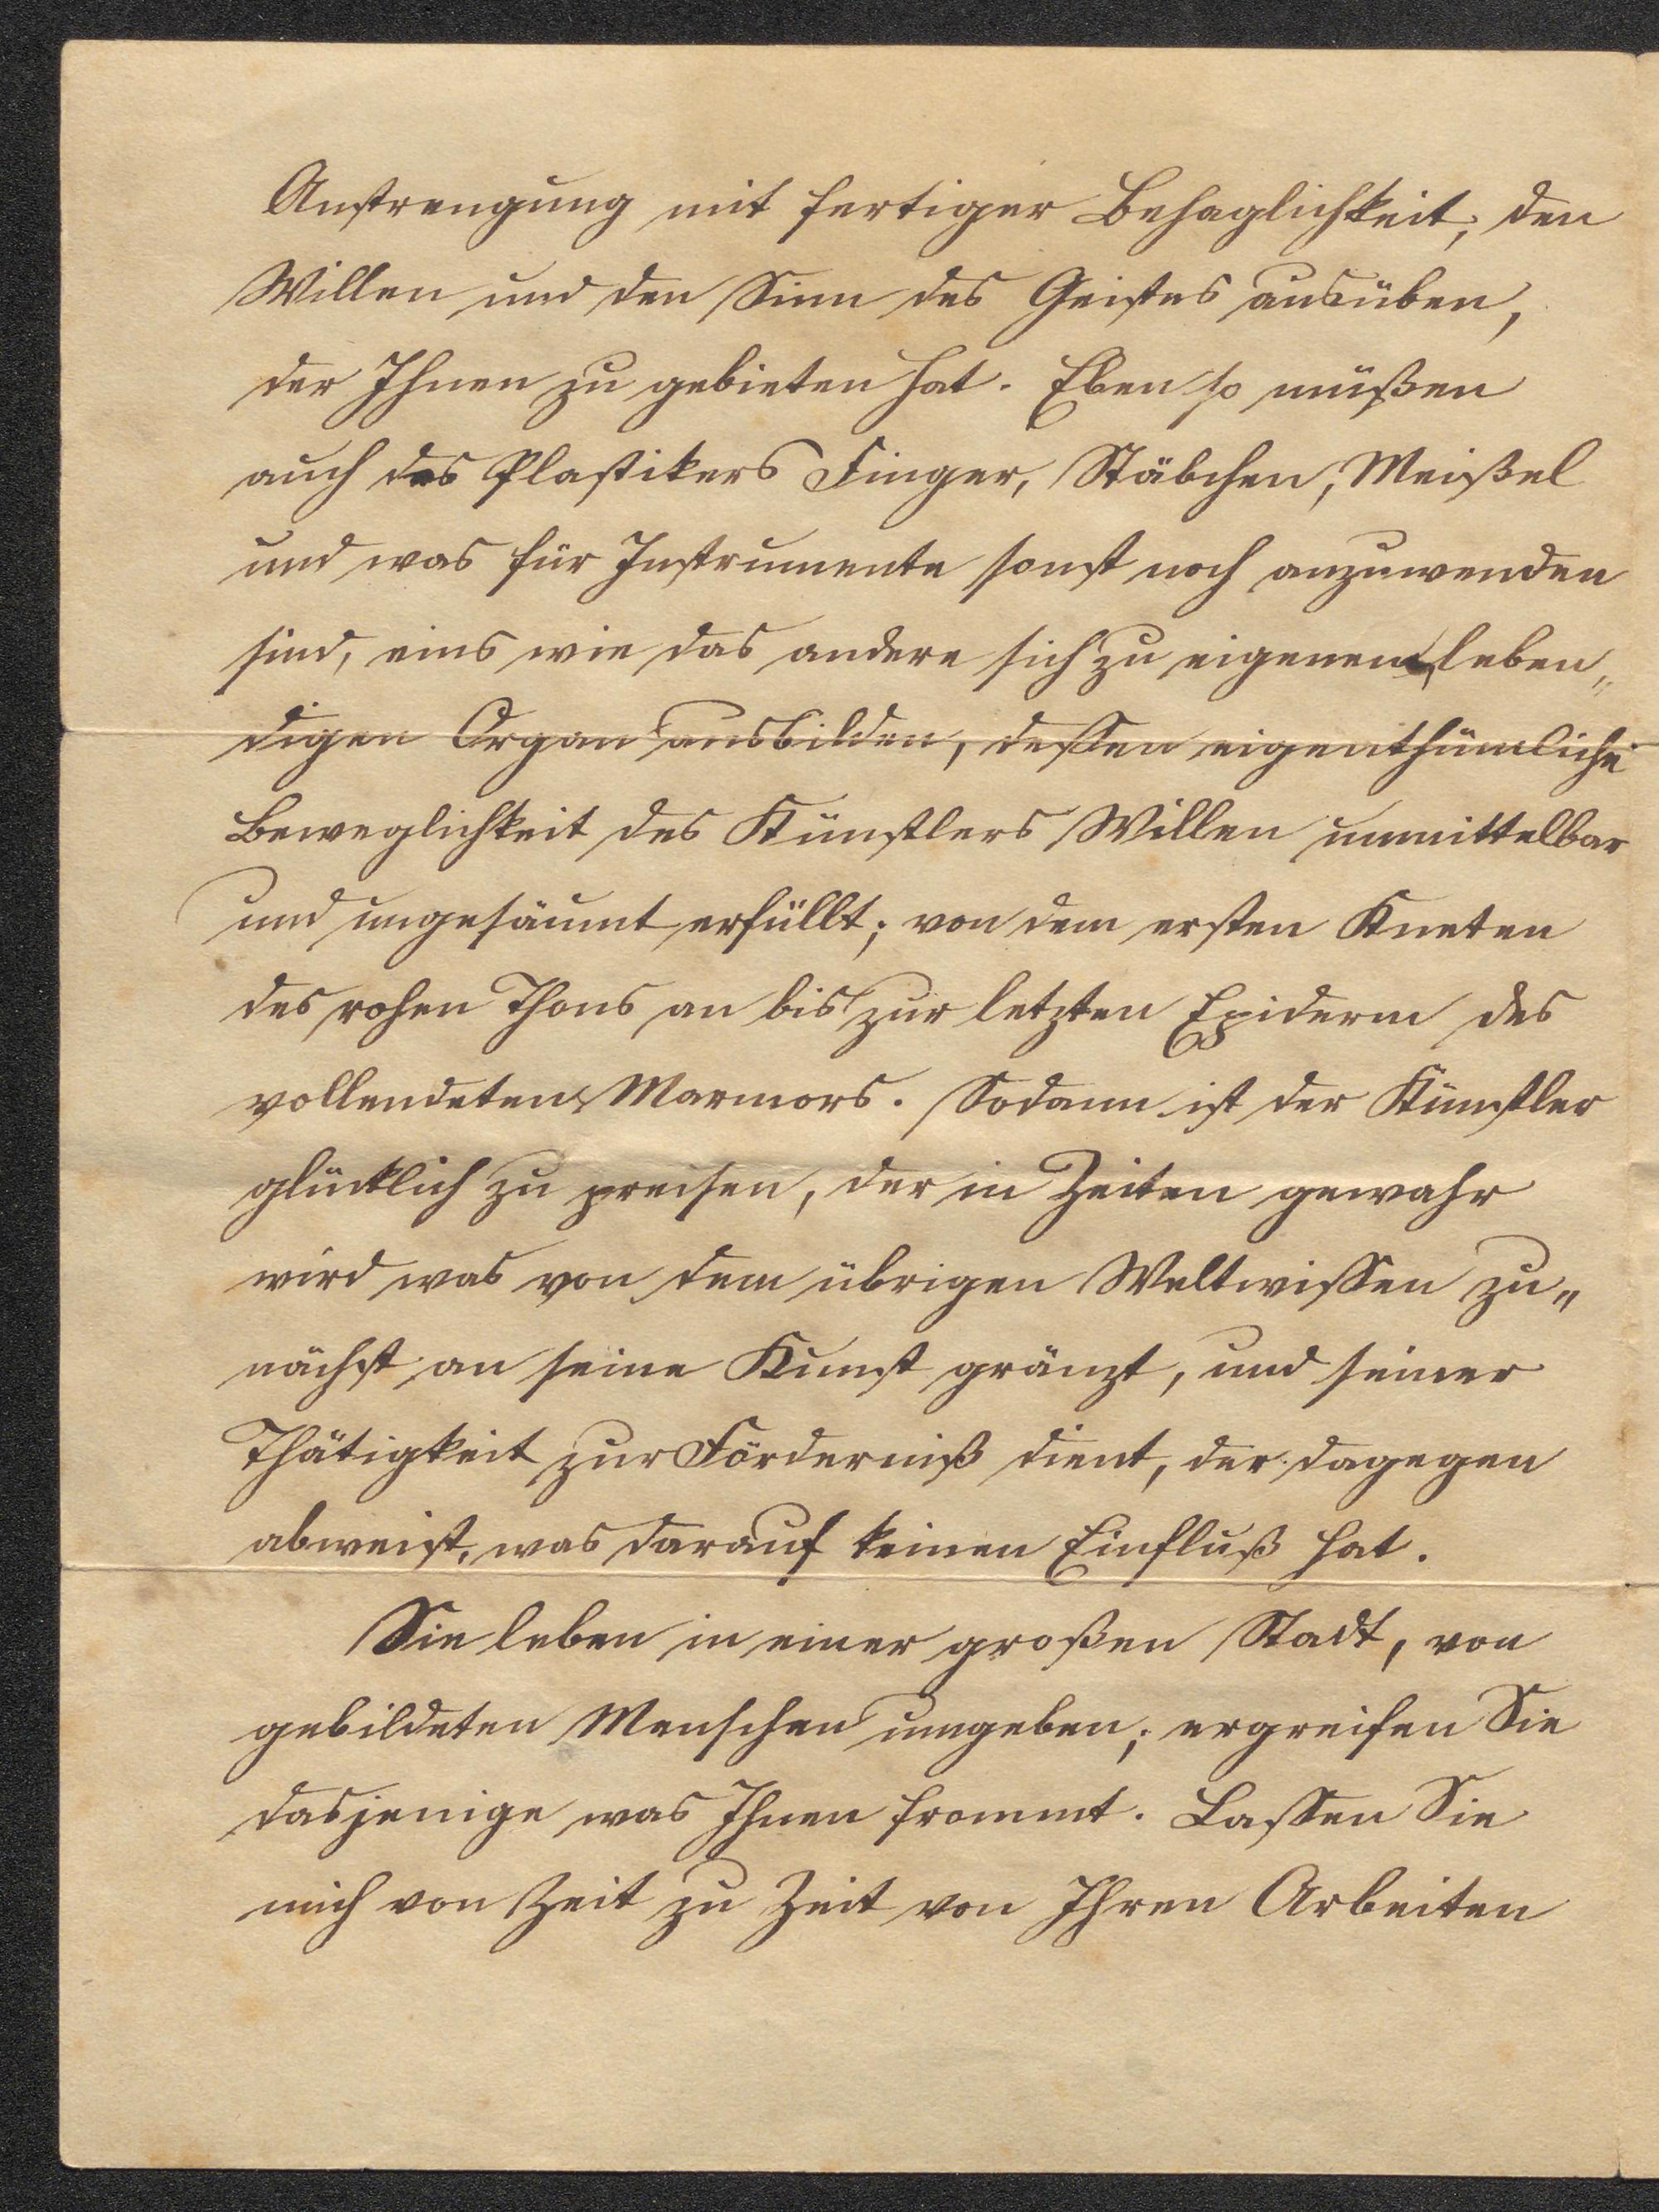 Anstrengung mit fertiger Behaglichkeit, den
Willen und den Sinn des Geistes ausüben,
der Ihnen zu gebieten hat. Eben so müßen
auch des Plastikers Finger, Stäbchen, Meißel
und was für Instrumente sonst noch anzuwenden
sind, eins wie das andere sich zu eigenen leben„
digen Organ ausbilden, dessen eigenthümliche
Beweglichkeit des Künstlers Willen unmittelbar
und ungesäumt erfüllt; von dem ersten Kneten
des rohen Thons an bis zur letzten Epiderm des
vollendeten Marmors. Sodann ist der Künstler
glücklich zu preisen, der in Zeiten gewahr
wird was von dem übrigen Weltwissen zu„
nächst an seine Kunst gränzt, und seiner
Thätigkeit zur Förderniß dient, der dagegen
abweist, was darauf keinen Einfluß hat.
Sie leben in einer großen Stadt, von
gebildeten Menschen umgeben; ergreifen Sie
dasjenige was Ihnen frommt. Lassen Sie
mich von Zeit zu Zeit von Ihren Arbeiten